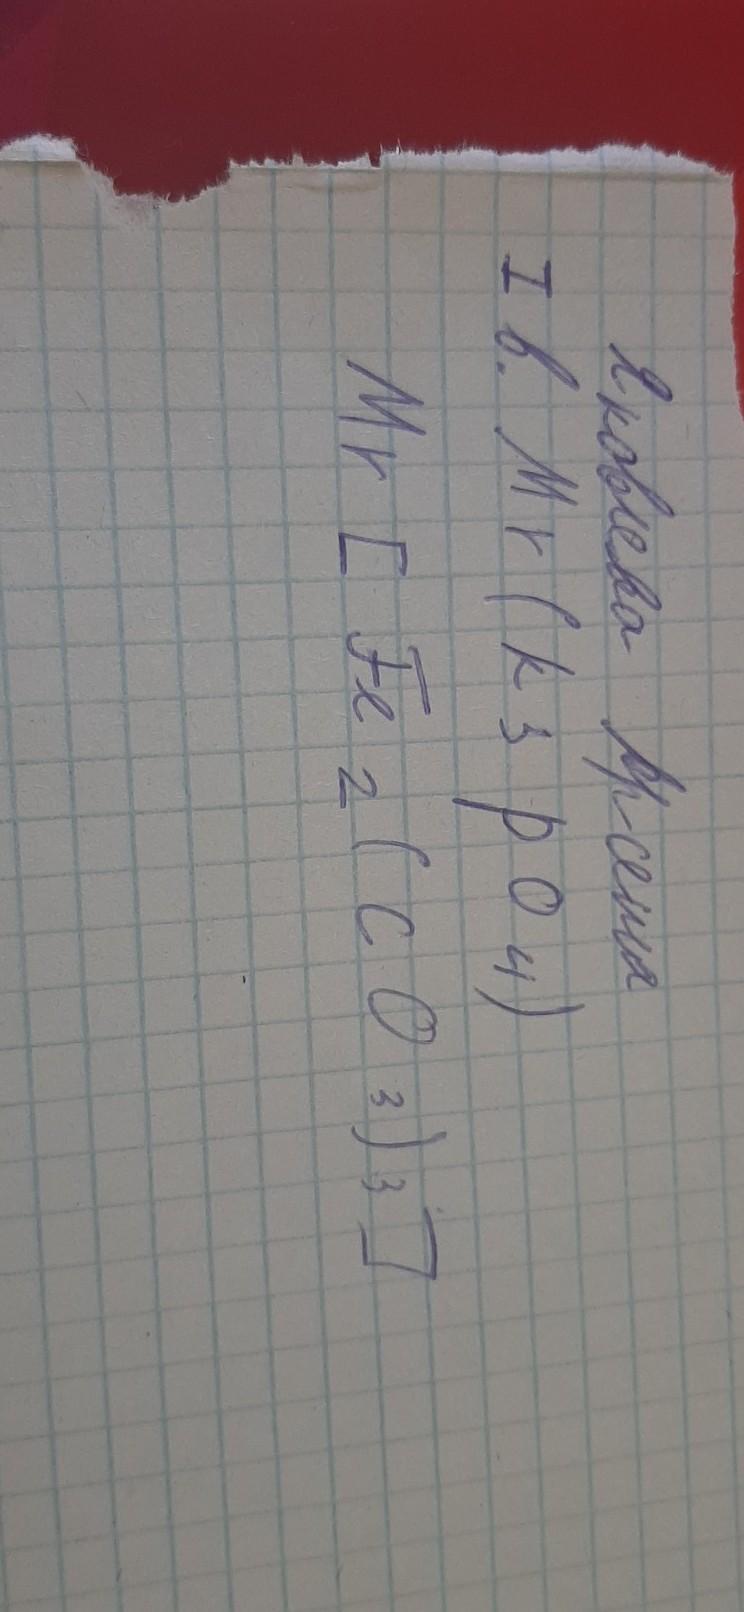 Яковлева Арсения
I в. Mr (k3 p O4)
Mr [Fe2(CO3)3]